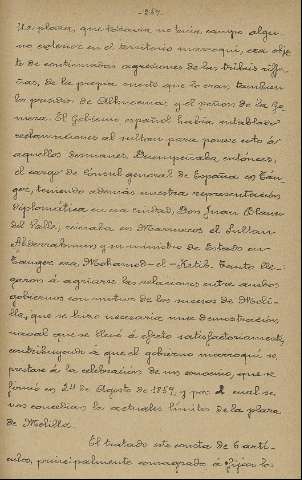 -257-
la plaza, que todavía no tenía campo algu-
no exterior en el territorio marroquí, era obje-
to de continuadas agresiones de las tribus riffe-
ñas, de la propia suerte que lo eran tambien
los peñones de Alhucemas y el peñon de la Go-
mera. El Gobierno español había entablado
reclamaciones al sultan para poner coto á
aquellos desmanes. Desempeñaba entónces,
el cargo de Consul general de España en Tán-
ger, teniendo además nuestra representación
diplomática en esa ciudad, Don Juan Blanco
del Valle; reinaba en Marruecos el Sultan
Abderrahman y su ministro de Estado en
Tánger era, Mohamed-el-Katib. Tanto lle-
garon á agriarse las relaciones entre ambos
gobiernos con motivo de los sucesos de Meli-
lla, que se hizo necesaria una demostración
naval que se llevó á efecto satisfactoriamente,
contribuyendo á que el gobierno marroquí se
prestara á la celebración de un convenio, que se
firmó en 24 de Agosto de 1859 y por el cual se
nos concedian los actuales límites de la plaza
de Melilla.
El tratado este consta de 6 artí-
culos, principalmente consagrado á fijar los